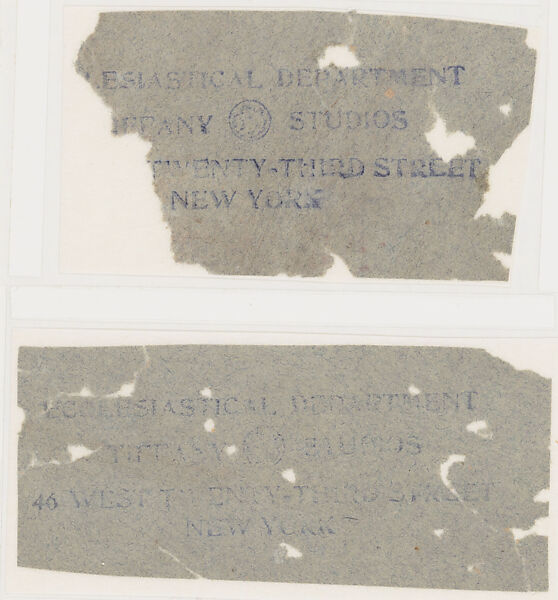 CLESIASTICAL DEPARTMENT
IFFANY STUDIOS
TWENTY-THIRD STREET
NEW YORK
ECCLESIASTICAL DEPARTMENT
TIFFANY STUDIOS
46 WEST TWENTY-THIRD STREET
NEW YORK